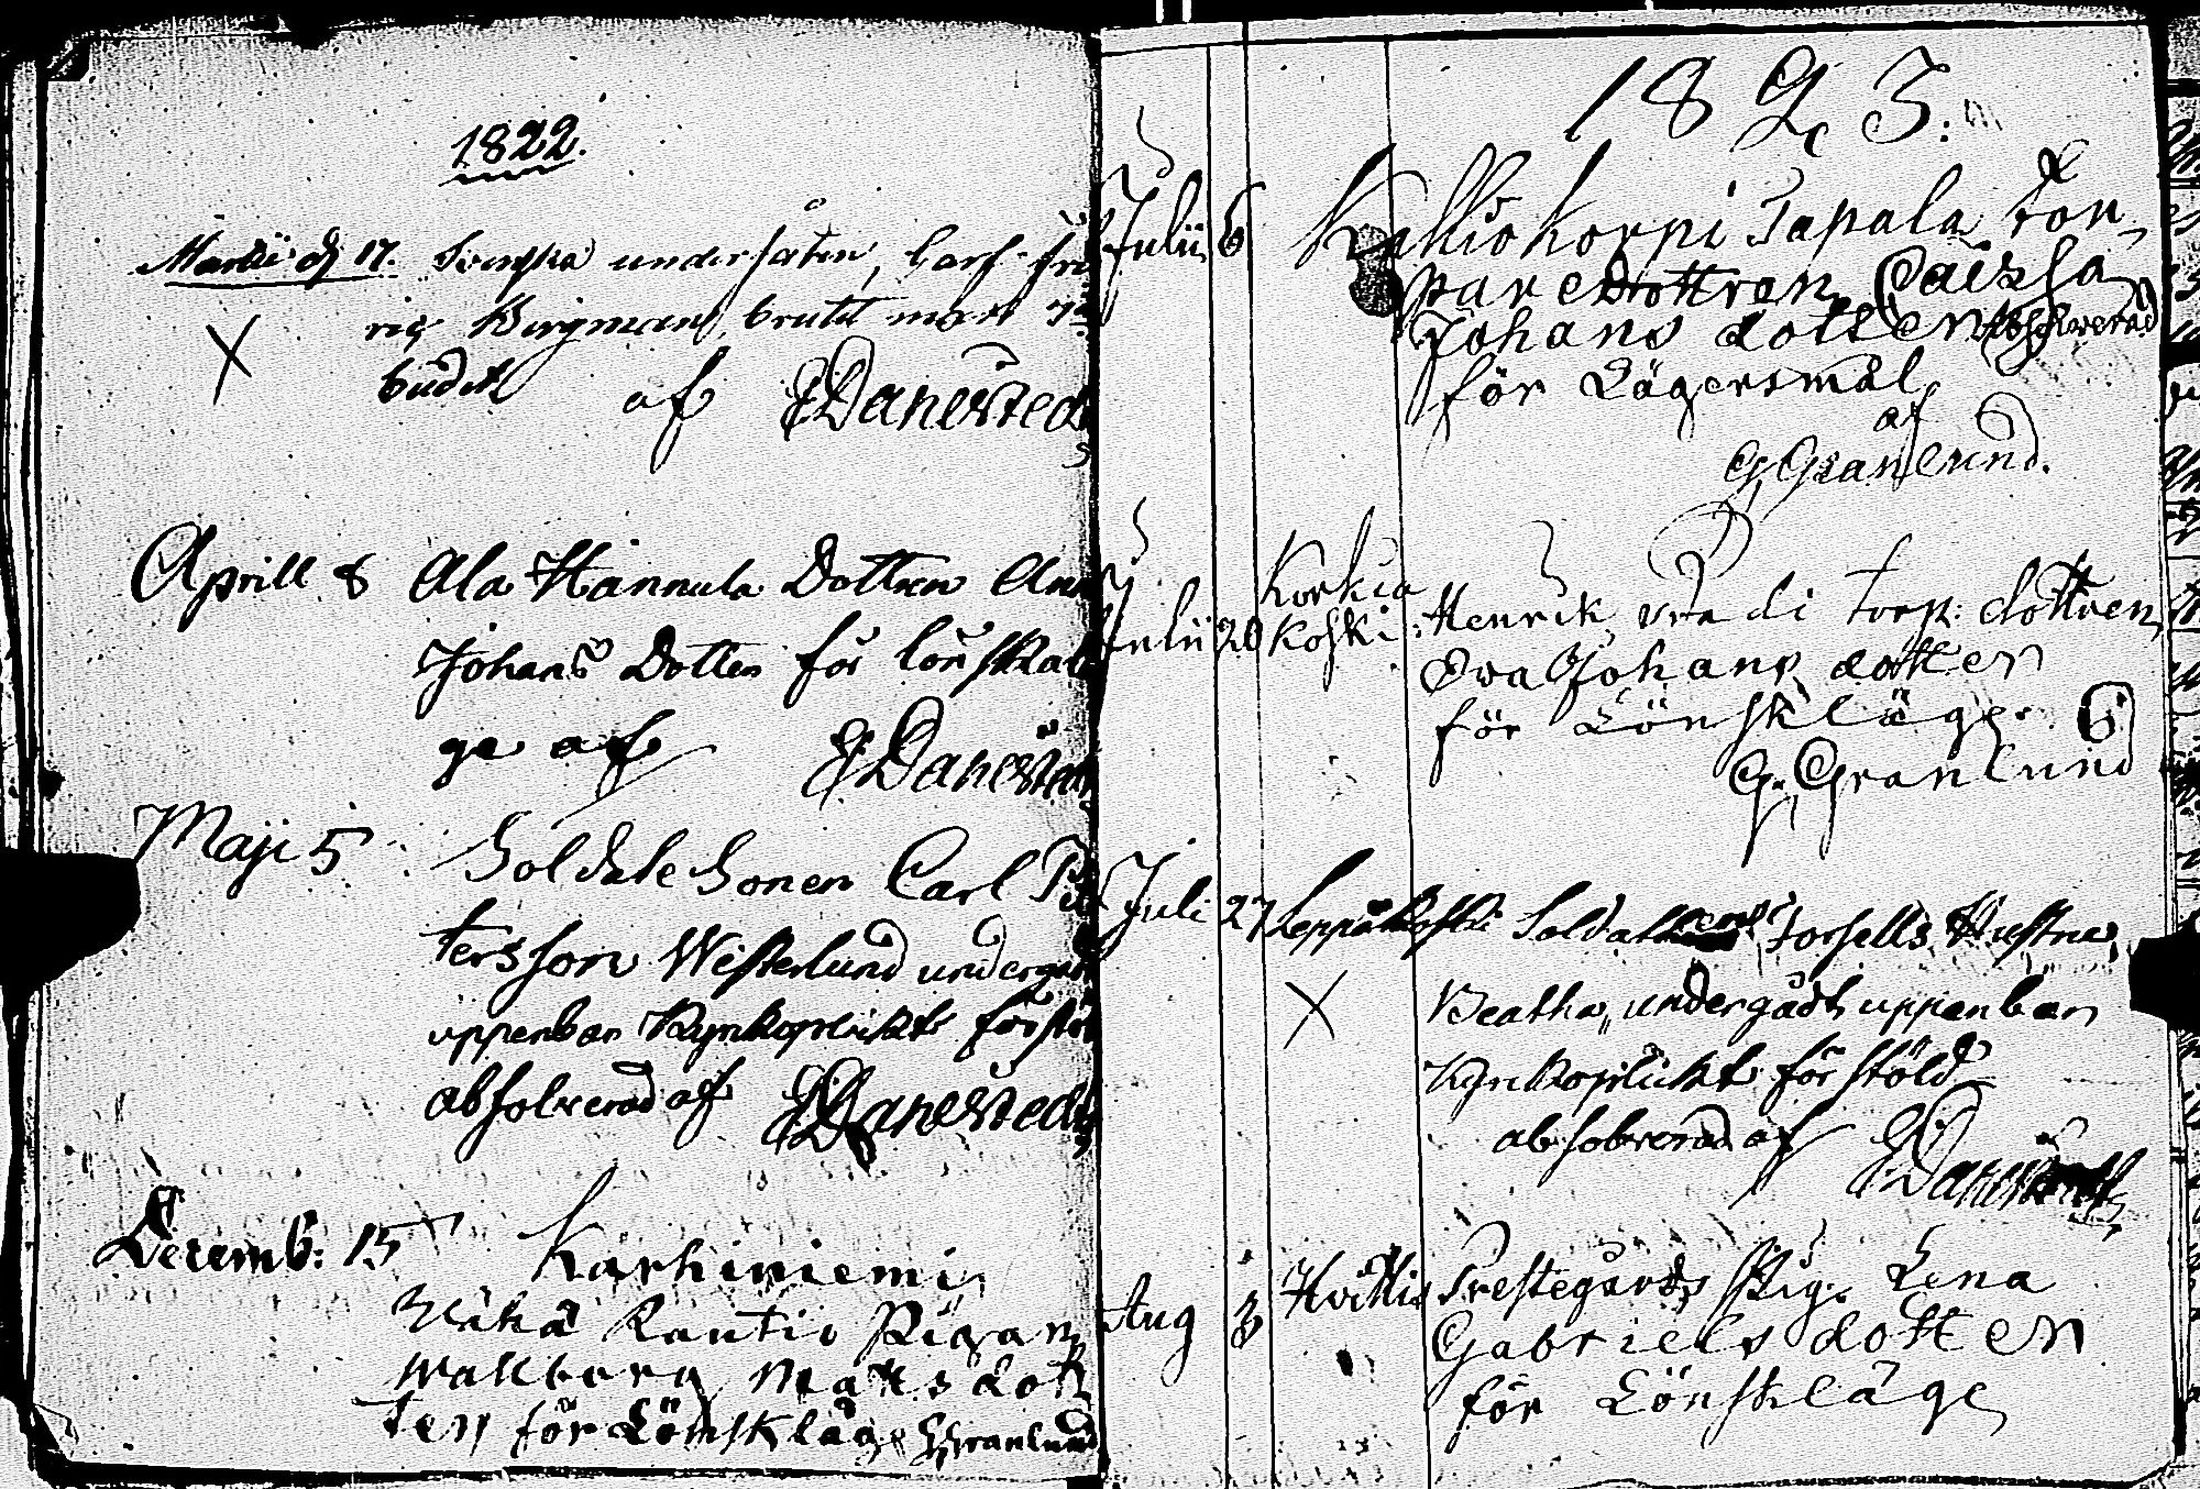 1822.
Martii d 17. Svenska undersåten, Carl Fri
ric Bergman, brutit mot 7de
budet af EDanersted
Aprill 8 Ala Hannula Dottren Ann
Johans Dotter för lönskal
ge af EDanersted
Maji 5 Soldate Sonen Carl Pet
tersson Westerlund undergått
uppenbar Kyrkoplickt för stöl
absolverad af EDanersted
Decemb: 15 Karhiniemi
Rautio Pigan
Wallborg Matts dot
ter för Lönskläge GGranlund
1823.
Julii 6 Kalliokorpi Papala tor
pare Dottren Caisa
Johans dotter Absolverad
för Lägersmål
af
G Granlund.
Julii 20 Korkia
Koski: Henrik torp: dottren
Eva Johans dotter
för Lönskläge.
G. Granlund
Juli 27 Leppäkoski Soldaten Forsells Hustru
Beatha, undergådt uppenbar
Kyrkoplickt för stöld
absolverad af EDanersted
Aug 3 Hvittis Prestegårds Pig: Lena
Gabriels dotter
för Lönskläge